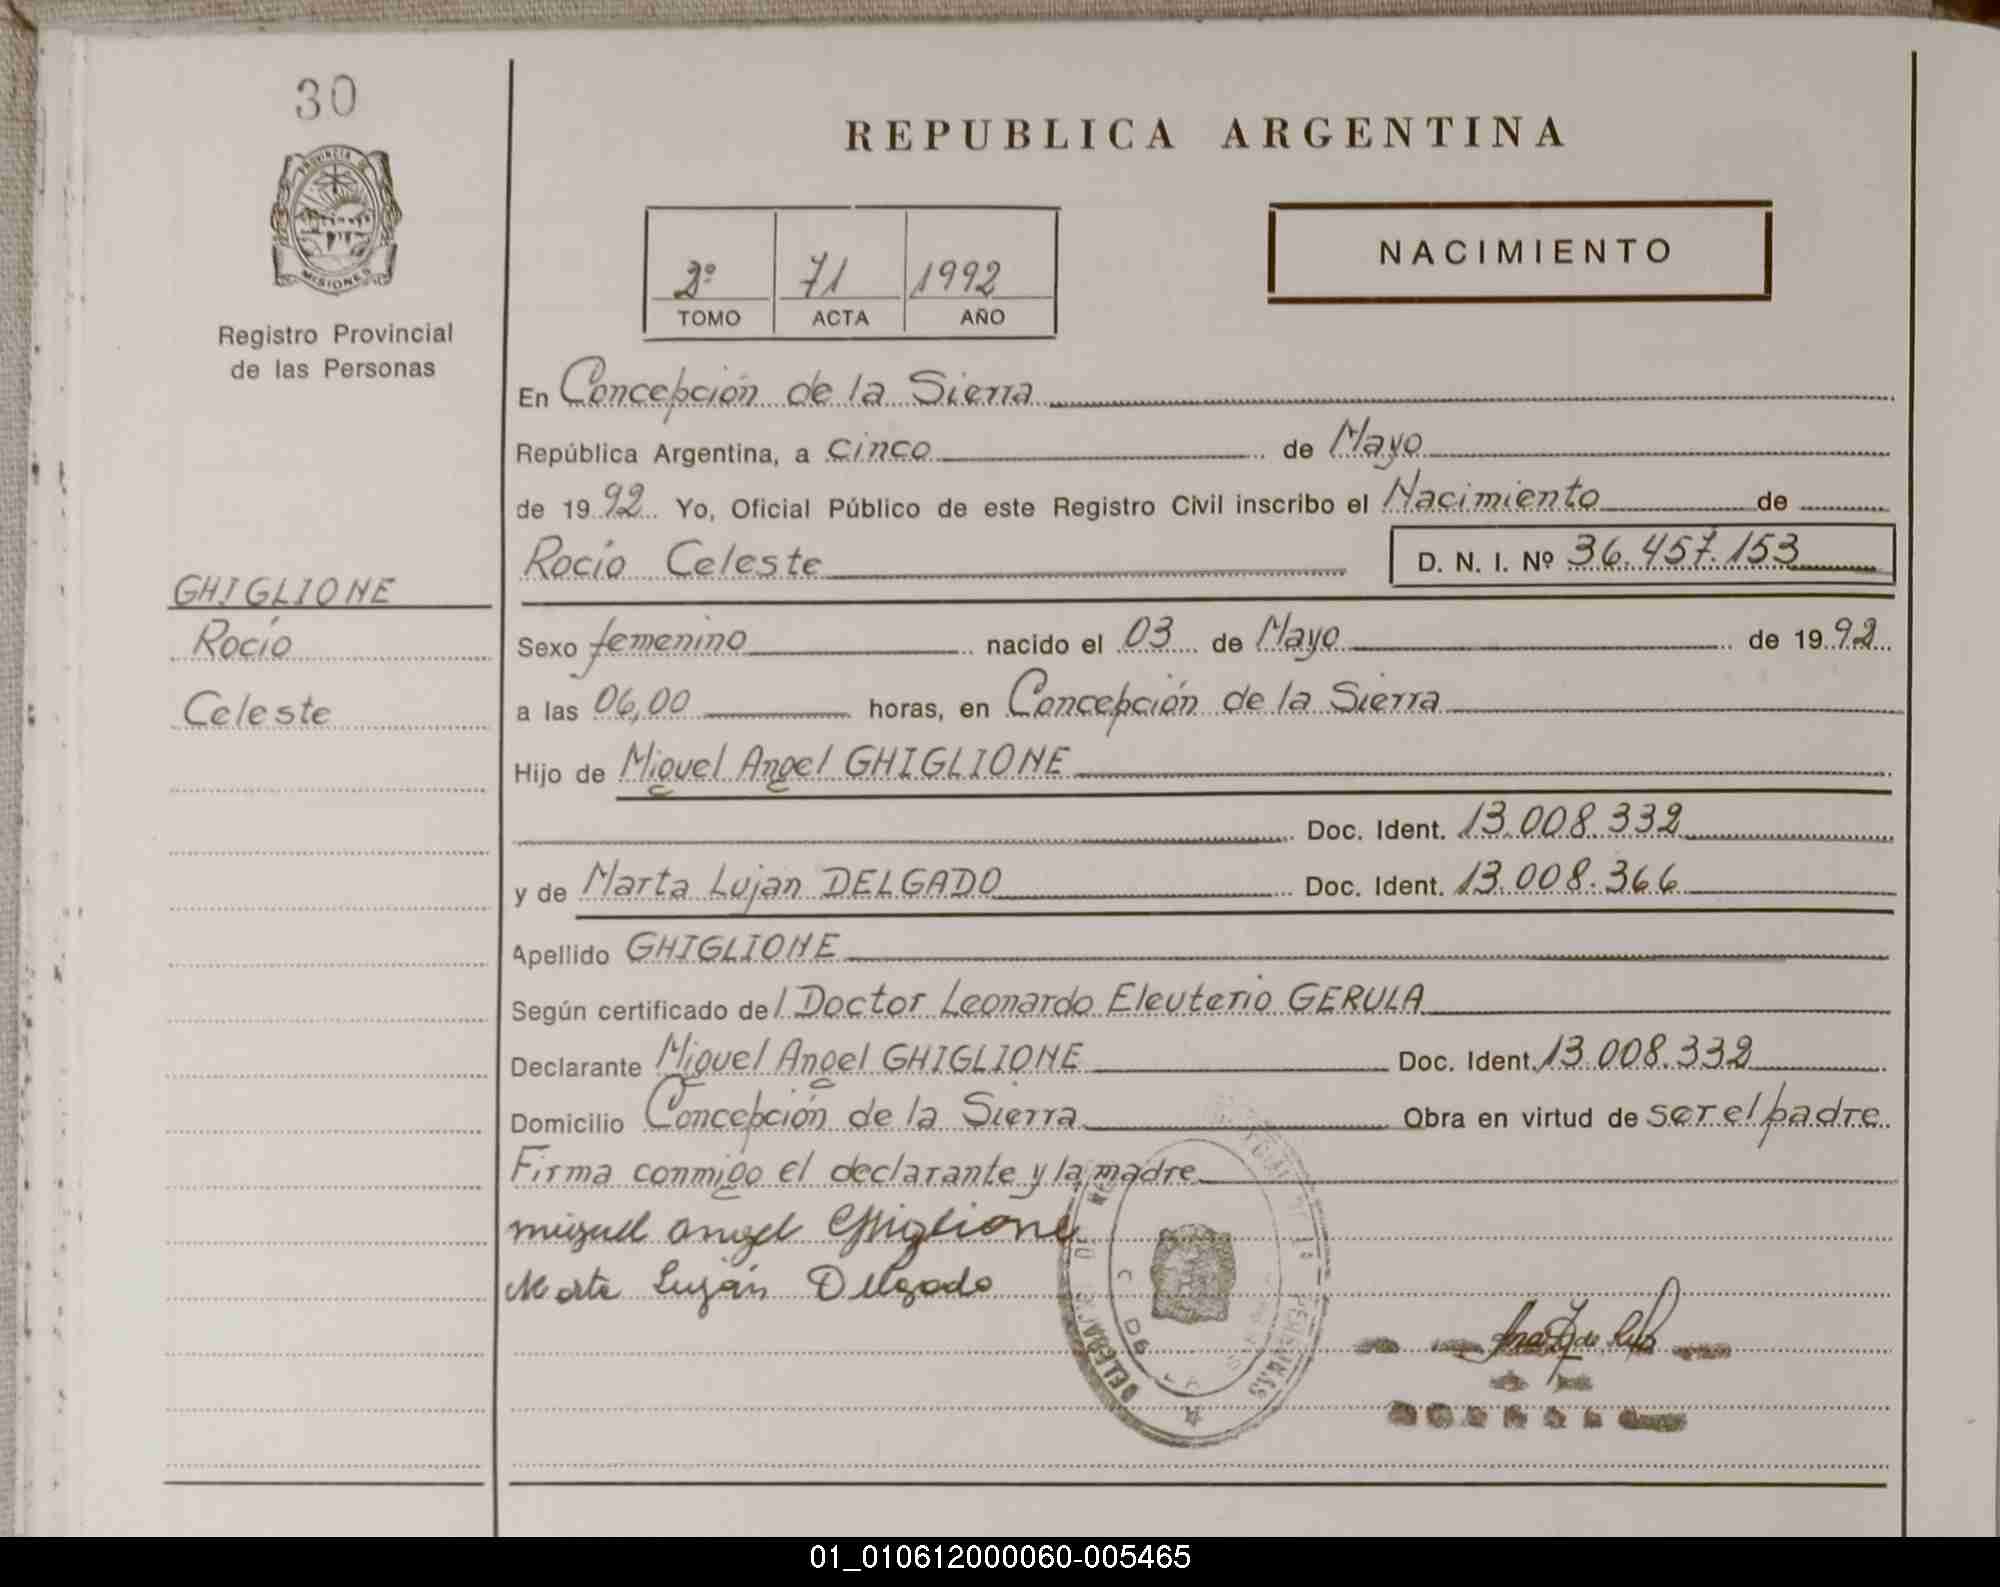 30
PROVINCIA DE
MISIONES
Registro Provincial
de las Personas
GHIGLIONE
Rocío
Celeste
REPUBLICA ARGENTINA
NACIMIENTO
2º 71 1992
TOMO ACTA AÑO
En Concepción de la Sierra
República Argentina, a cinco de Mayo
de 1992 Yo, Oficial Público de este Registro Civil inscribo el Nacimiento de
Rocío Celeste D. N. I. Nº 36.457.153
Sexo femenino nacido el 03 de Mayo de 1992
a las 06,00 horas, en Concepción de la Sierra
Hijo de Miguel Angel GHIGLIONE
Doc. Ident. 13.008.332
y de Marta Lujan DELGADO Doc. Ident. 13.008.366
Apellido GHIGLIONE
Según certificado del Doctor Leonardo Eleuterio GERULA
Declarante Miguel Angel GHIGLIONE Doc. Ident. 13.008.332
Domicilio Concepción de la Sierra Obra en virtud de ser el padre
Firma conmigo el declarante y la madre
miguel angel Ghiglione
Marta Luján Delgado
01_010612000060-005465